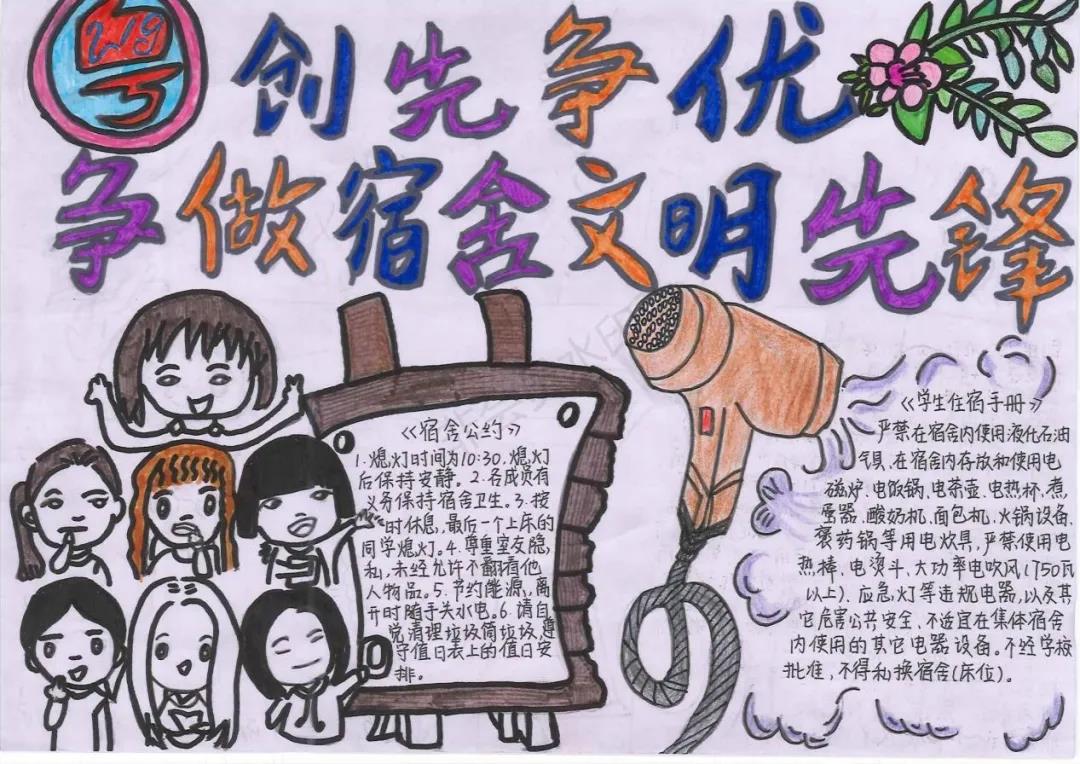 创先争优
争做宿舍文明先锋
《宿舍公约》
1.熄灯时间为10:30,熄灯
后保持安静。2.各成员有
义务保持宿舍卫生。3.按
时休息,最后一个上床的
同学熄灯。4.尊重室友隐
私,未经允许不翻看他
人物品。5.节约能源,离
开时随手关水电。6.请自
觉清理垃圾筒垃圾,遵
守值日表上的值日安
排。
《学生住宿手册》
严禁在宿舍内使用液化石油
气具、在宿舍内存放和使用电
磁炉、电饭锅、电茶壶、电热杯、煮
蛋器、酸奶机、面包机、火锅设备、
煲药锅等用电炊具,严禁使用电
热棒、电熨斗、大功率电吹风(750瓦
以上)、应急灯等违规电器,以及其
它危害公共安全、不适宜在集体宿舍
内使用的其它电器设备。不经学校
批准,不得私换宿舍(床位)。